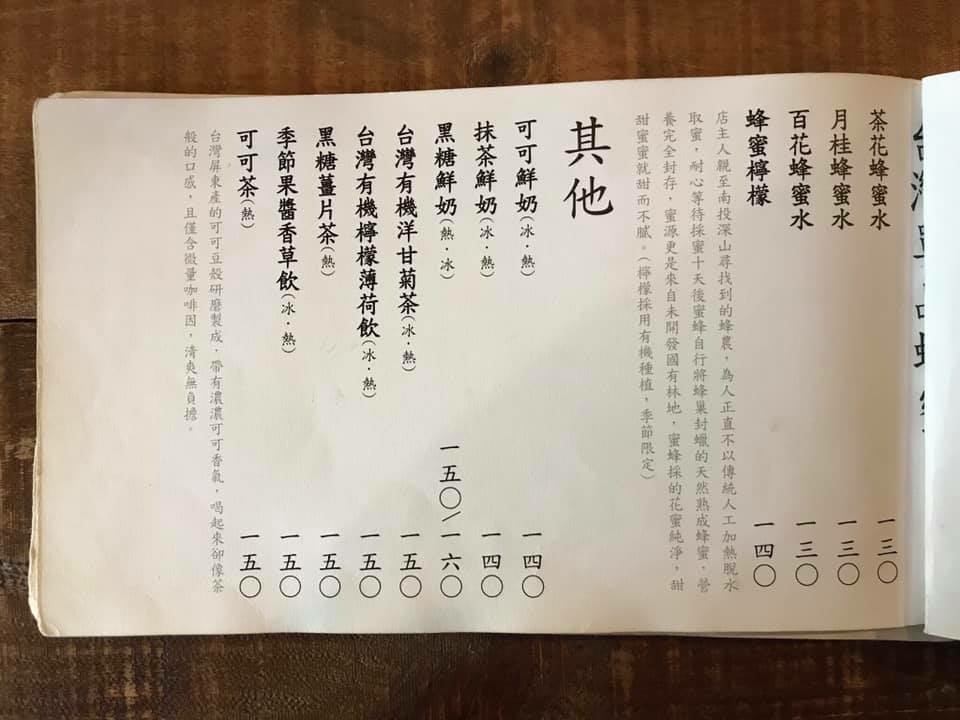 茶花蜂蜜水 一三〇
月桂蜂蜜水 一三〇
百花蜂蜜水 一三〇
蜂蜜檸檬 一四〇
店主人親至南投深山尋找到的蜂農，為人正直不以傳統人工加熱脫水
取蜜，耐心等待採蜜十天後蜜蜂自行將蜂巢封蠟的天然熟成蜂蜜，營
養完全封存，蜜源更是來自未開發國有林地，蜜蜂採的花蜜純淨，甜
甜蜜蜜就甜而不膩。（檸檬採用有機種植，季節限定）
其他
可可鮮奶（冰·熱） 一四〇
抹茶鮮奶（冰·熱） 一四〇
黑糖鮮奶（熱·冰） 一五〇/一六〇
台灣有機洋甘菊茶（冰·熱） 一五〇
台灣有機檸檬薄荷飲（冰·熱） 一五〇
黑糖薑片茶（熱） 一五〇
季節果醬香草飲（冰·熱） 一五〇
可可茶（熱） 一五〇
台灣屏東產的可可豆殼研磨製成，帶有濃濃可可香氣，喝起來卻像茶
般的口感，且僅含微量咖啡因，清爽無負擔。